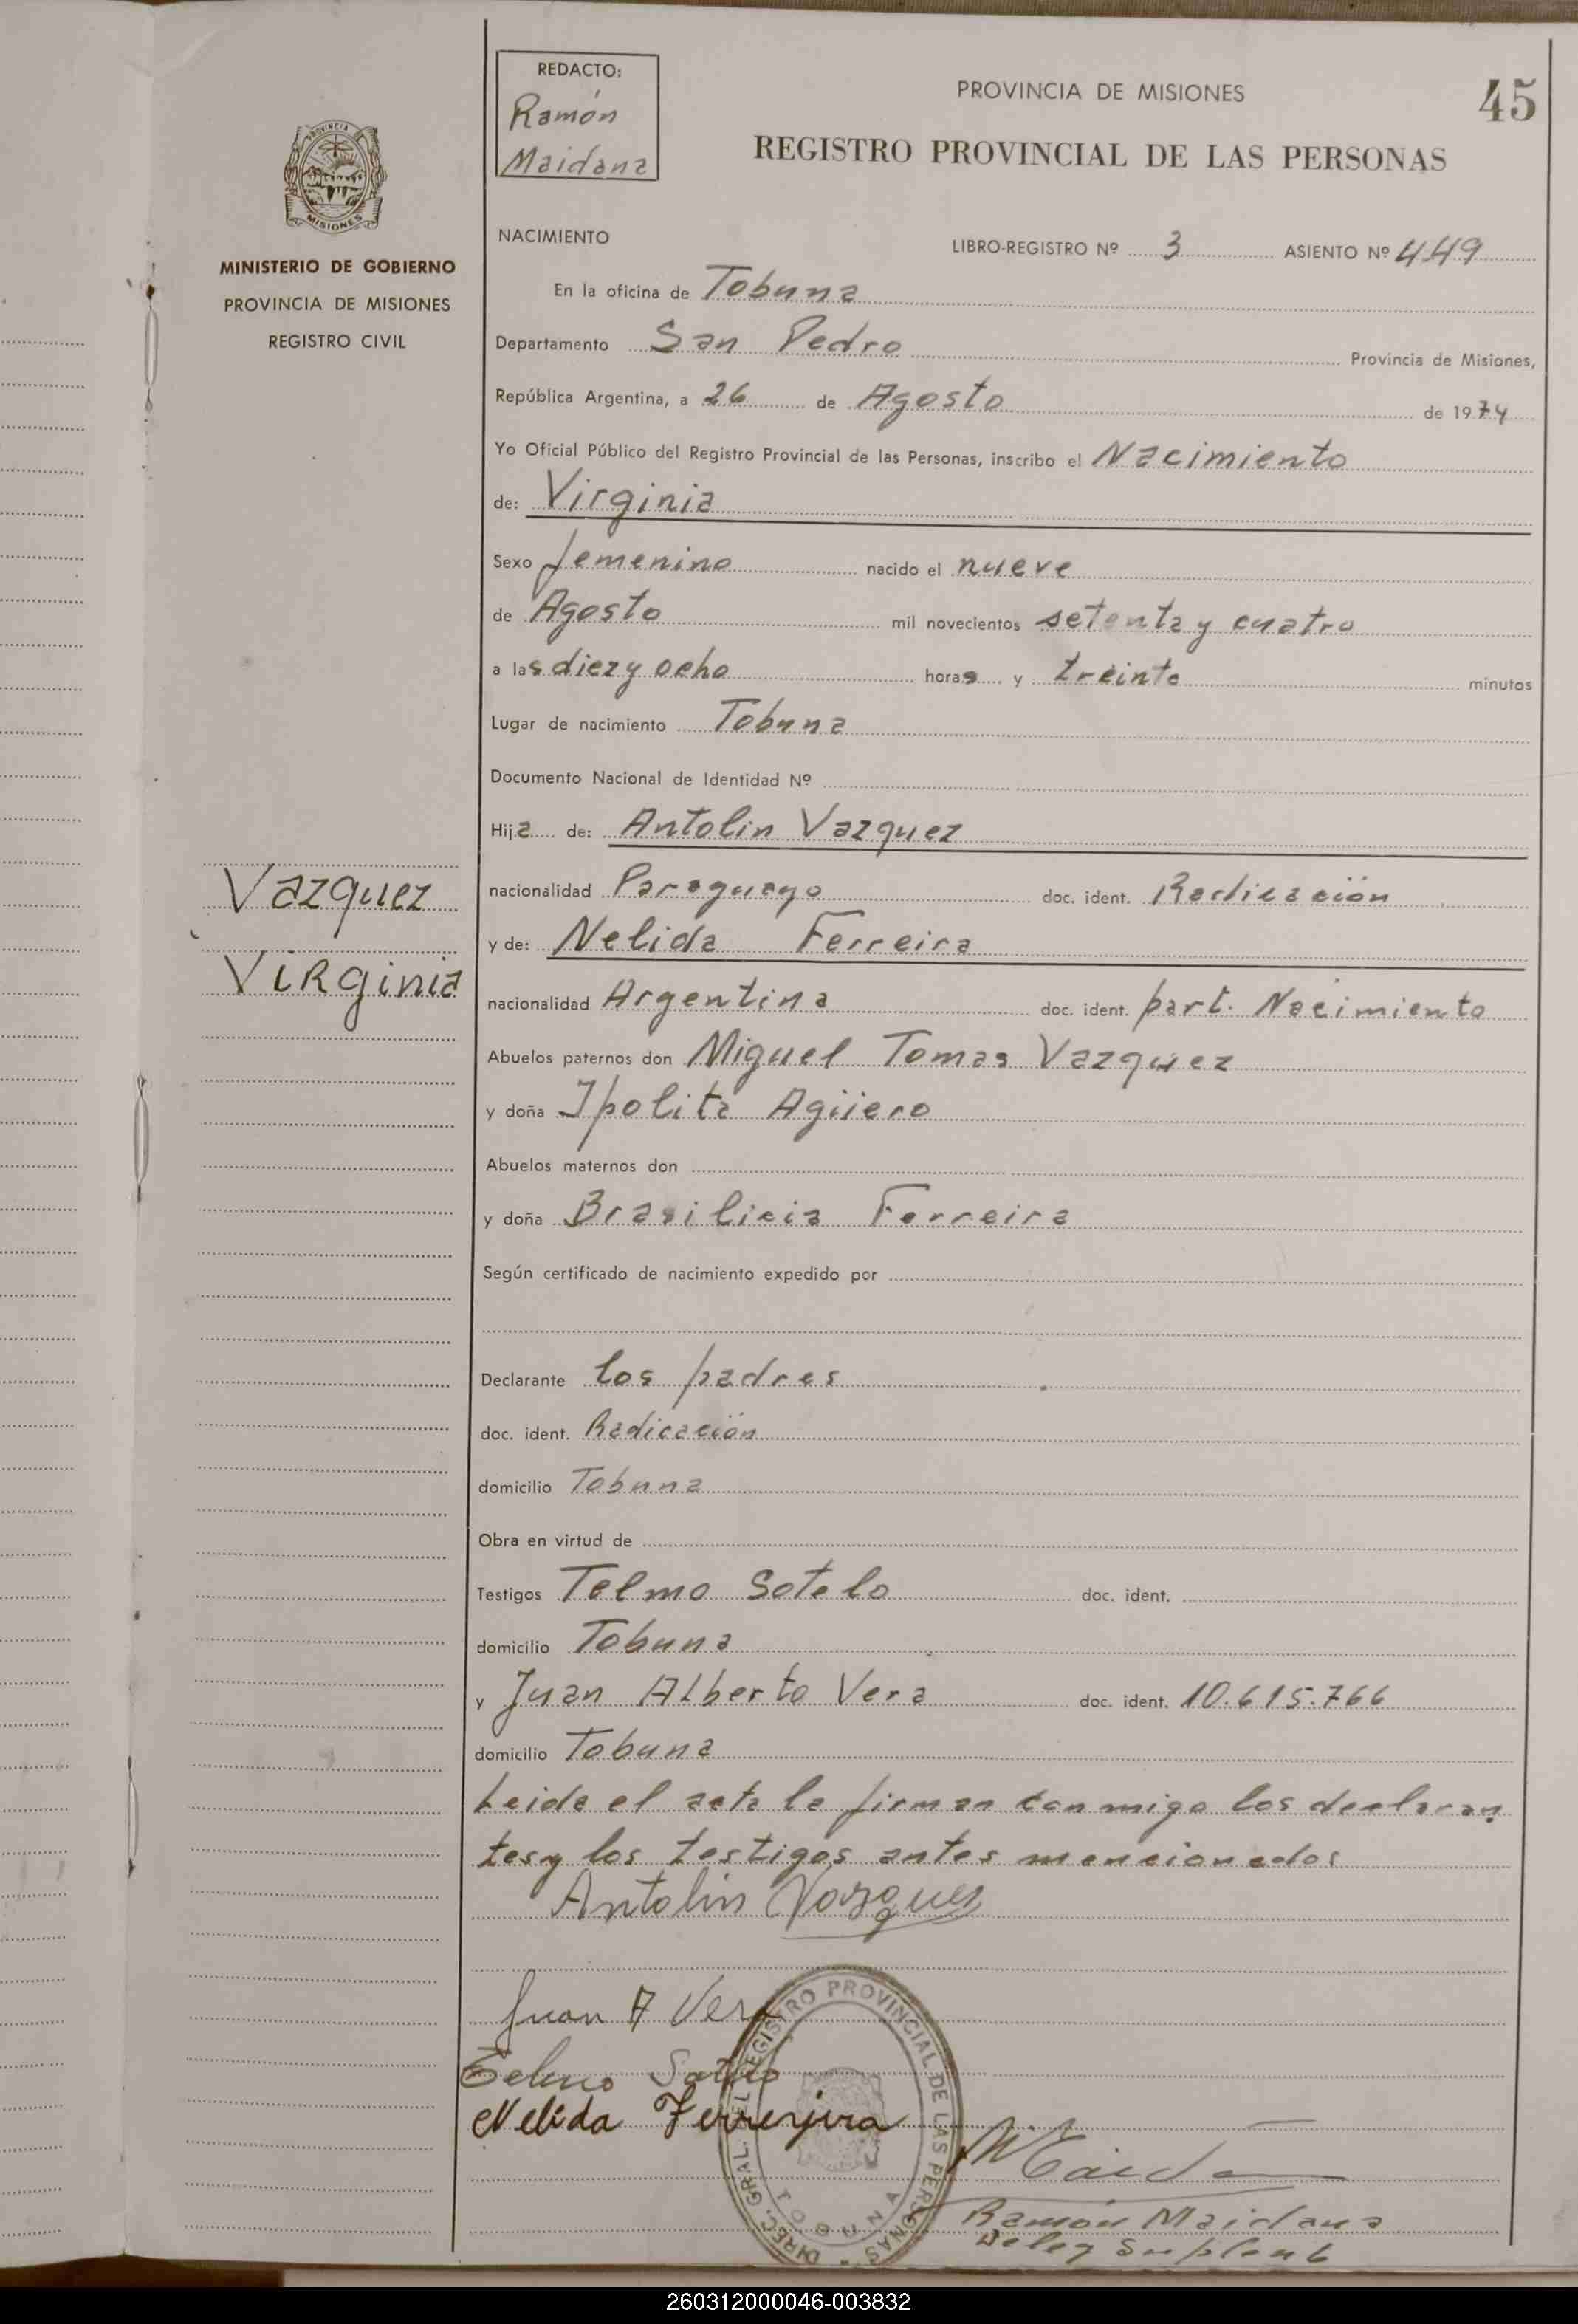 REDACTO:
Ramón
Maidana
PROVINCIA DE MISIONES
45
REGISTRO PROVINCIAL DE LAS PERSONAS
PROVINCIA DE
MISIONES
MINISTERIO DE GOBIERNO
PROVINCIA DE MISIONES
REGISTRO CIVIL
NACIMIENTO
LIBRO-REGISTRO Nº 3 ASIENTO Nº 449
En la oficina de Tobuna
Departamento San Pedro Provincia de Misiones,
República Argentina, a 26 de Agosto de 1974
Yo Oficial Público del Registro Provincial de las Personas, inscribo el Nacimiento
de: Virginia
Sexo femenino nacido el nueve
de Agosto mil novecientos setenta y cuatro
a las diez y ocho horas y treinta minutos
Lugar de nacimiento Tobuna
Documento Nacional de Identidad Nº
Hija de: Antolin Vazquez
Vazquez
Virginia
nacionalidad Paraguayo doc. ident. Radicación
y de: Nelida Ferreira
nacionalidad Argentina doc. ident. part. Nacimiento
Abuelos paternos don Miguel Tomas Vazquez
y doña Ipolita Agüero
Abuelos maternos don
y doña Brasilicia Ferreira
Según certificado de nacimiento expedido por
Declarante los padres
doc. ident. Radicación
domicilio Tobuna
Obra en virtud de
Testigos Telmo Sotelo doc. ident.
domicilio Tobuna
y Juan Alberto Vera doc. ident. 10.615.766
domicilio Tobuna
Leida el acta la firman conmigo los declaran
tes y los testigos antes mencionados
Antolin Vazquez
Juan A Vera
Telmo Sotelo
Nelida Ferreyira
DIREC. GRAL. DEL REGISTRO PROVINCIAL DE LAS PERSONAS
TOBUNA
Ramón Maidana
Deleg Suplent
260312000046-003832